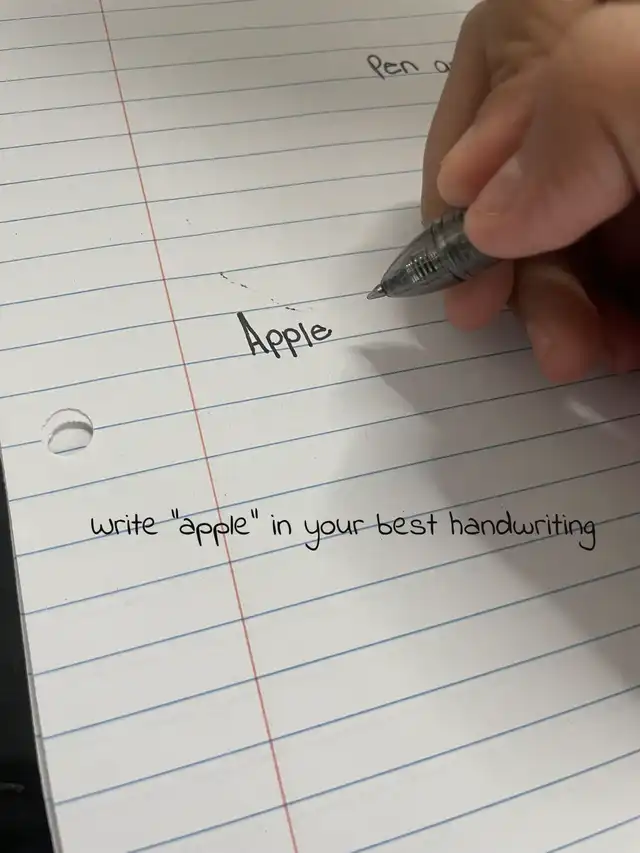 Pen
Apple
write "apple" in your best handwriting